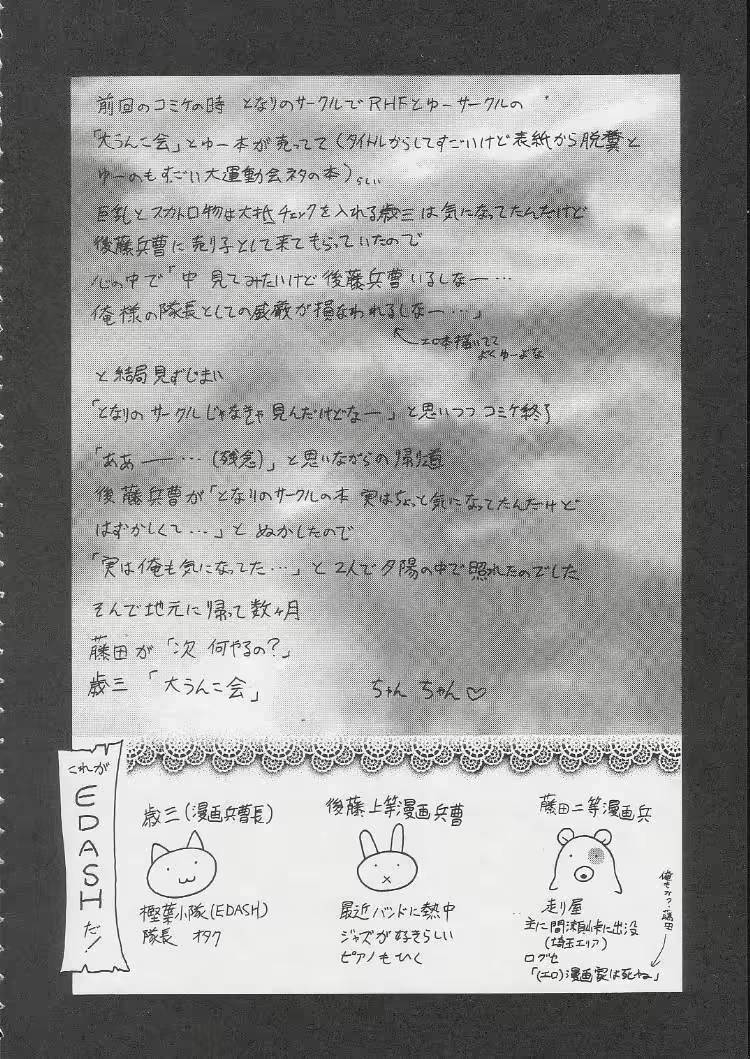 前回のコミケの時 となりのサークルでRHFとゆーサークルの
「大うんこ会」とゆー本が売ってて(タイトルからしてすごいけど表紙から脱糞と
ゆーのもすごい大運動会ネタの本)らしい
巨乳とスカトロ物は大抵チェックを入れる歳三は気になってたんだけど
後藤兵曹に売り子として来てもらっていたので
心の中で「中 見てみたいけど後藤兵曹いるしなー…
俺様の隊長としての威厳が損なわれるしなー…」
エロ本描いてて
よくゆーよな
と結局見ずじまい
「となりのサークルじゃなきゃ見んだけどなー」と思いつつコミケ終了
「ああー…(残念)」と思いながらの帰り道
後藤兵曹が「となりのサークルの本 実はちょっと気になってたんだけど
はずかしくて…」とぬかしたので
「実は俺も気になってた…」と2人で夕陽の中で照れたのでした
そんで地元に帰って数ヶ月
藤田が「次 何やるの?」
歳三「大うんこ会」 ちゃんちゃん♡
これが
EDASH
だ!
歳三(漫画兵曹長)
樫葉小隊(EDASH)
隊長 オタク
後藤上等漫画兵曹
最近バンドに熱中
ジャズが好きらしい
ピアノもひく
藤田二等漫画兵
走り屋
主に間瀬峠に出没
(埼玉エリア)
口グセ
「(エロ)漫画家は死ね」
俺もか?藤田